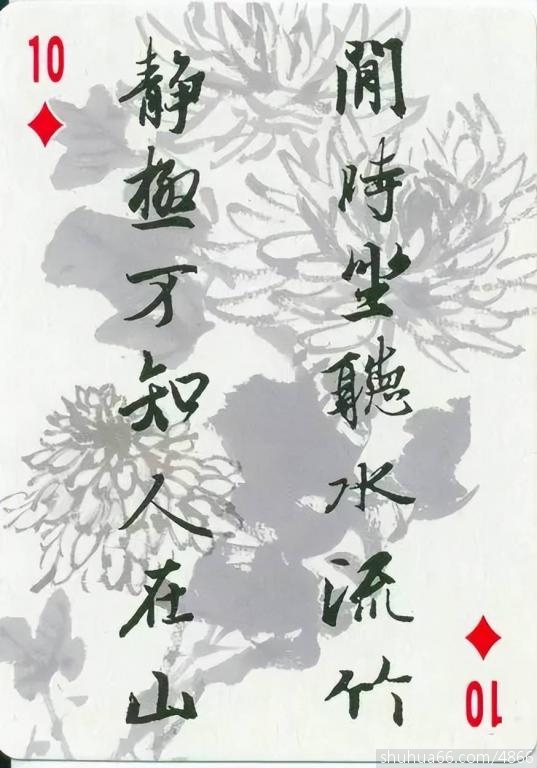 10
閒時坐聽水流竹
静極才知人在山
10
shuhua66.com/4866